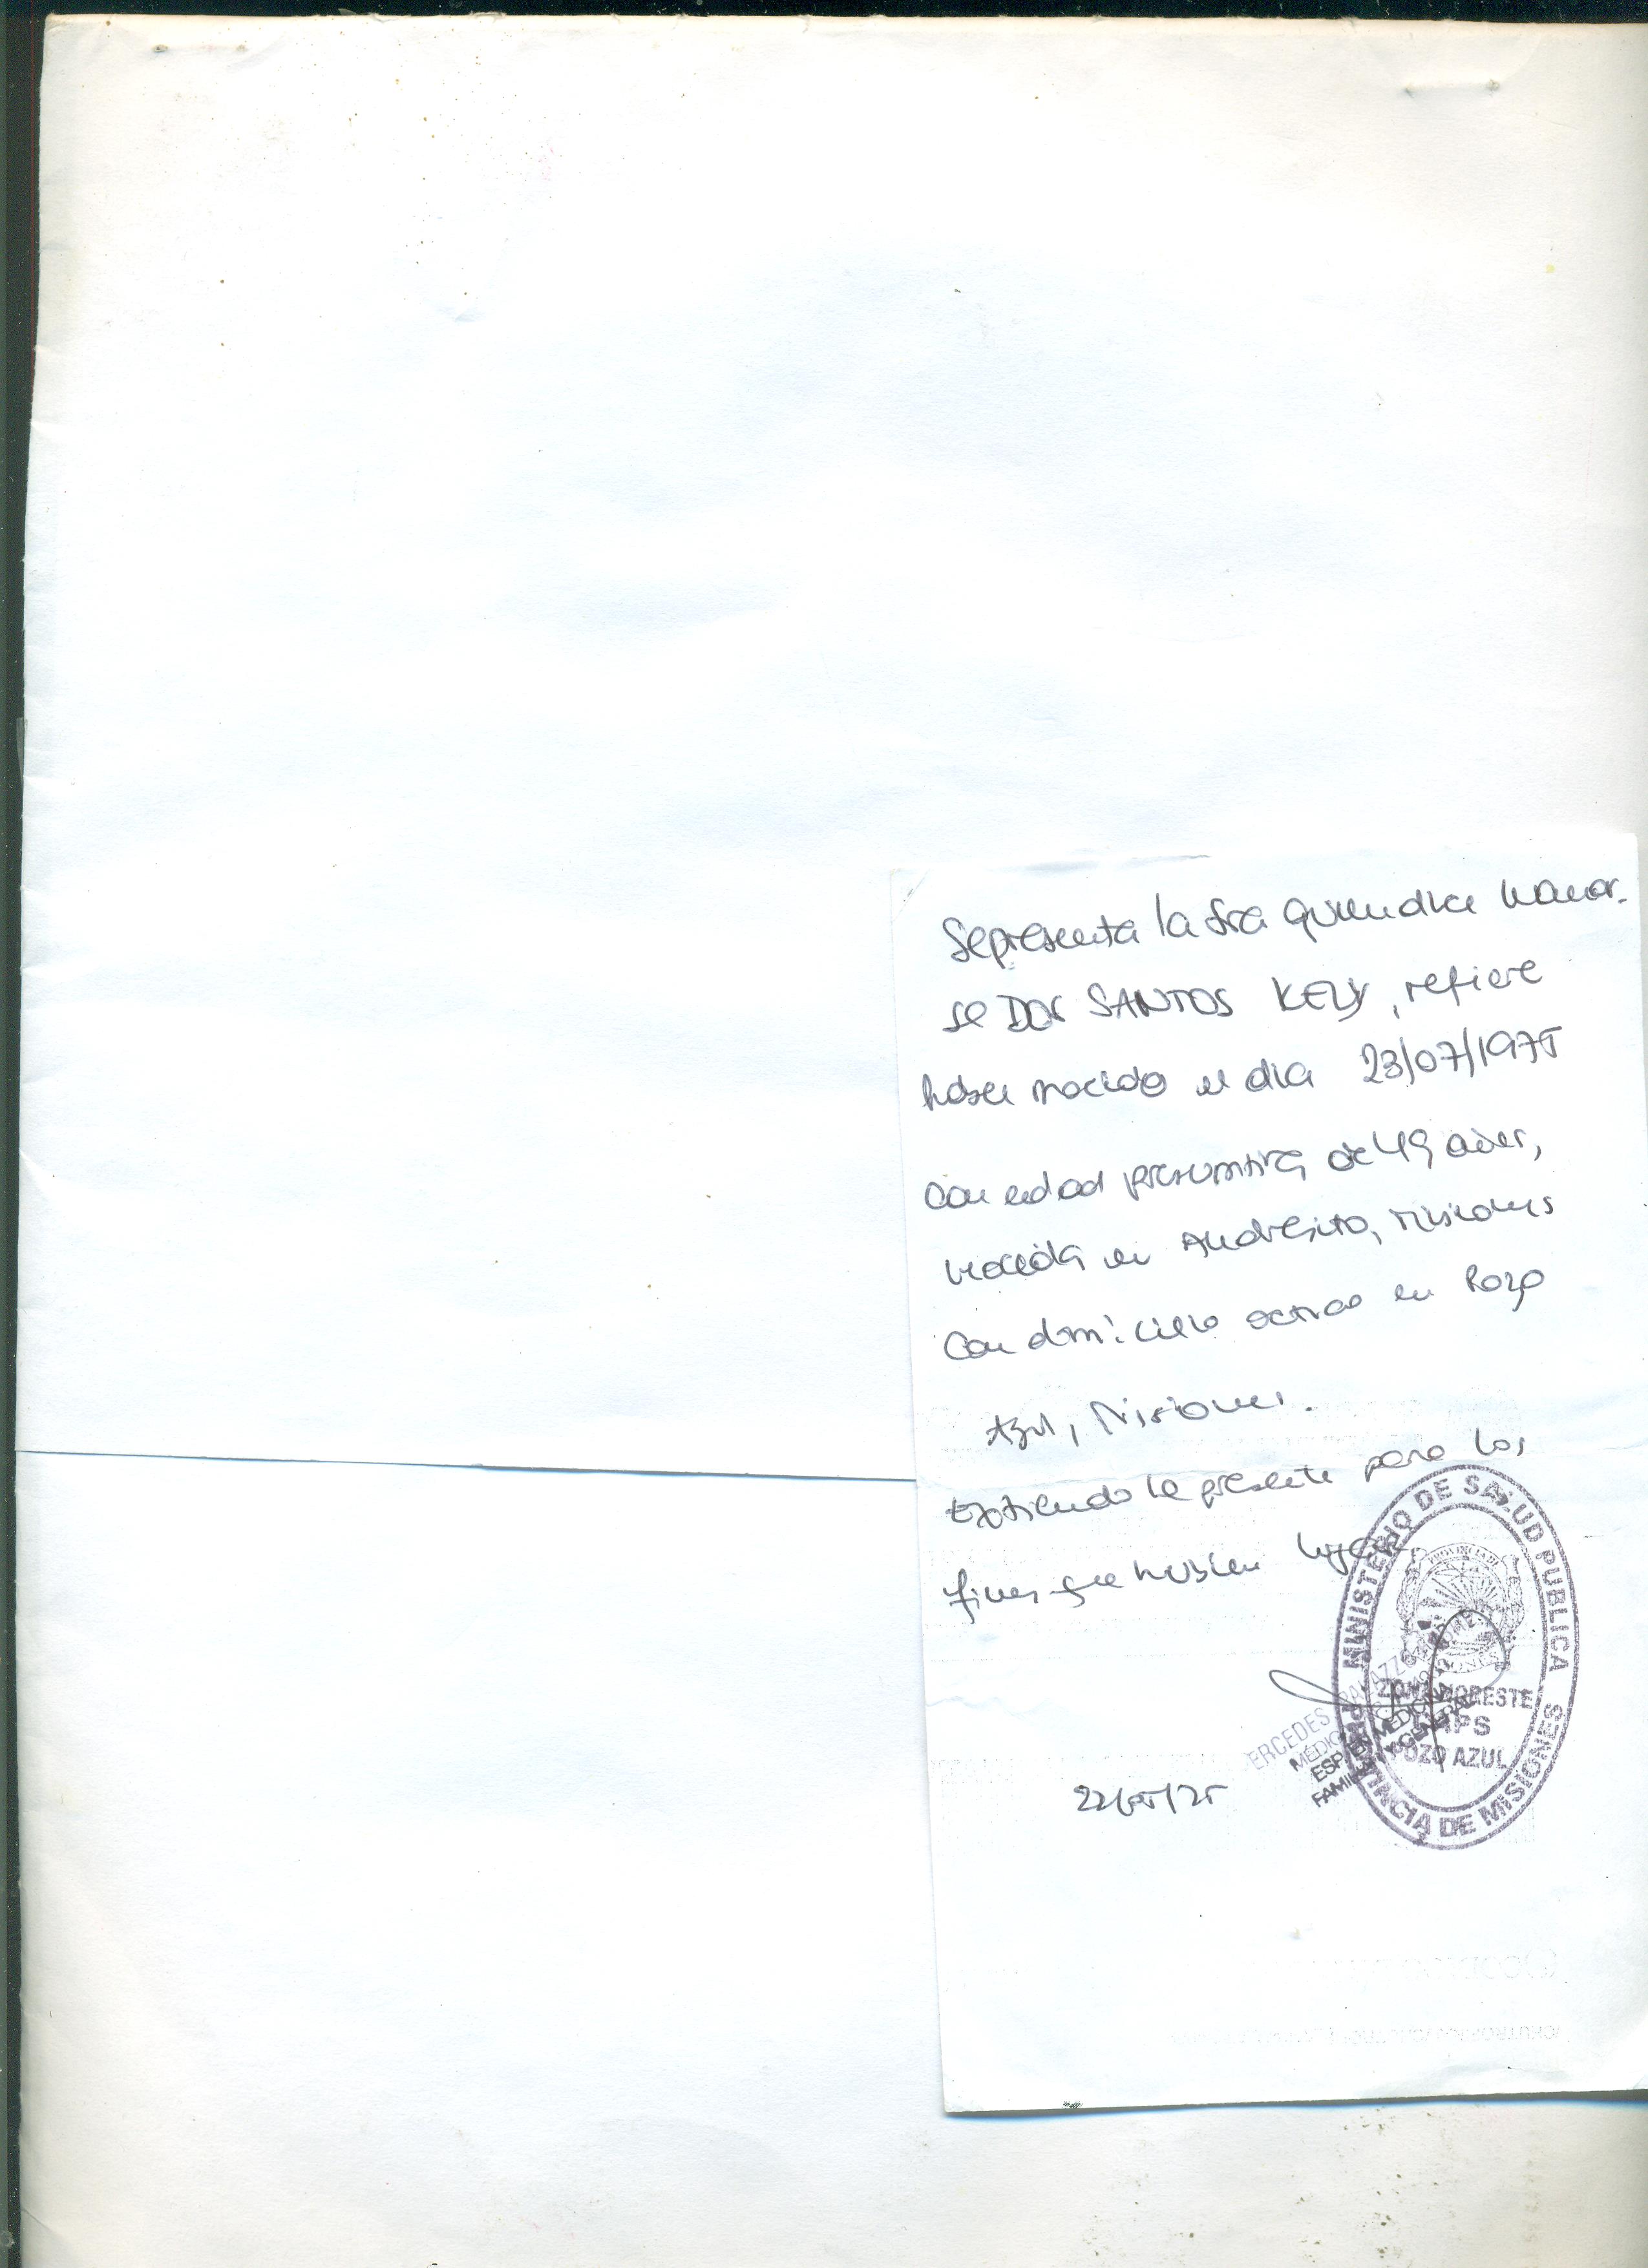 Se presenta la sra quien dice llamar-
se DOS SANTOS KELY, refiere
haber nacido el dia 23/07/1975
con edad presuntiva de 49 años,
nacida en Andresito, Misiones
Con domicilio actual en Pozo
Azul, Misiones.
Extiendo la presente para los
fines que hubiera lugar.
MINISTERIO DE SALUD PUBLICA
PROVINCIA DE MISIONES
ZONA NORESTE
CAPS
POZO AZUL
ERCEDES
MÉDIC
ESP. EN MEDICINA
FAMILIAR Y GENERAL
22/05/25